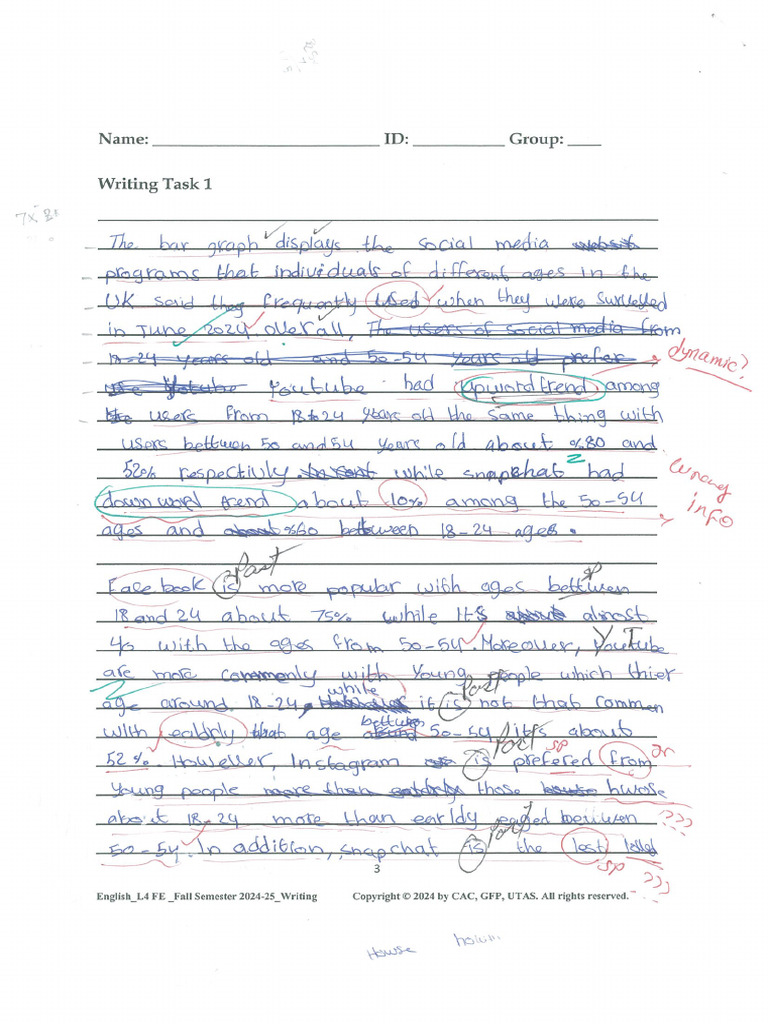 Name: ____________________________ ID: ___________ Group: ____
Writing Task 1
7x
The bar graph displays the social media website
programs that individuals of different ages in the
UK said they frequently used when they were survelled
in June 2024 overall, The users of social media from
18-24 years old and 50-54 years old prefer
dynamic?
the Youtube Youtube had upward trend among
users from 18 to 24 years old the same thing with
users bettwen 50 and 54 years old about %80 and
52% respectivly. while snapchat had
wrong info
down word trend about 10% among the 50-54
ages and about %60 bettwen 18-24 ages.
Past
sp
Face book is more popular with ages bettwen
18 and 24 about 75% while its about almost
40 with the ages from 50-54. Moreover, Youtube
are more commenly with young people which thier
while
Past
age around 18-24, it is not that commen
bettwen
with ealdrly that age around 50-54 it's about
Past
sp
52%. Howeller, Instagram is prefered from
young people more than those hwose
about 18-24 more than earldy eaged betwen
???
Past
50-54. In addition, snapchat is the lest
sp
???
3
English_L4 FE _Fall Semester 2024-25_Writing
Copyright © 2024 by CAC, GFP, UTAS. All rights reserved.
Howse